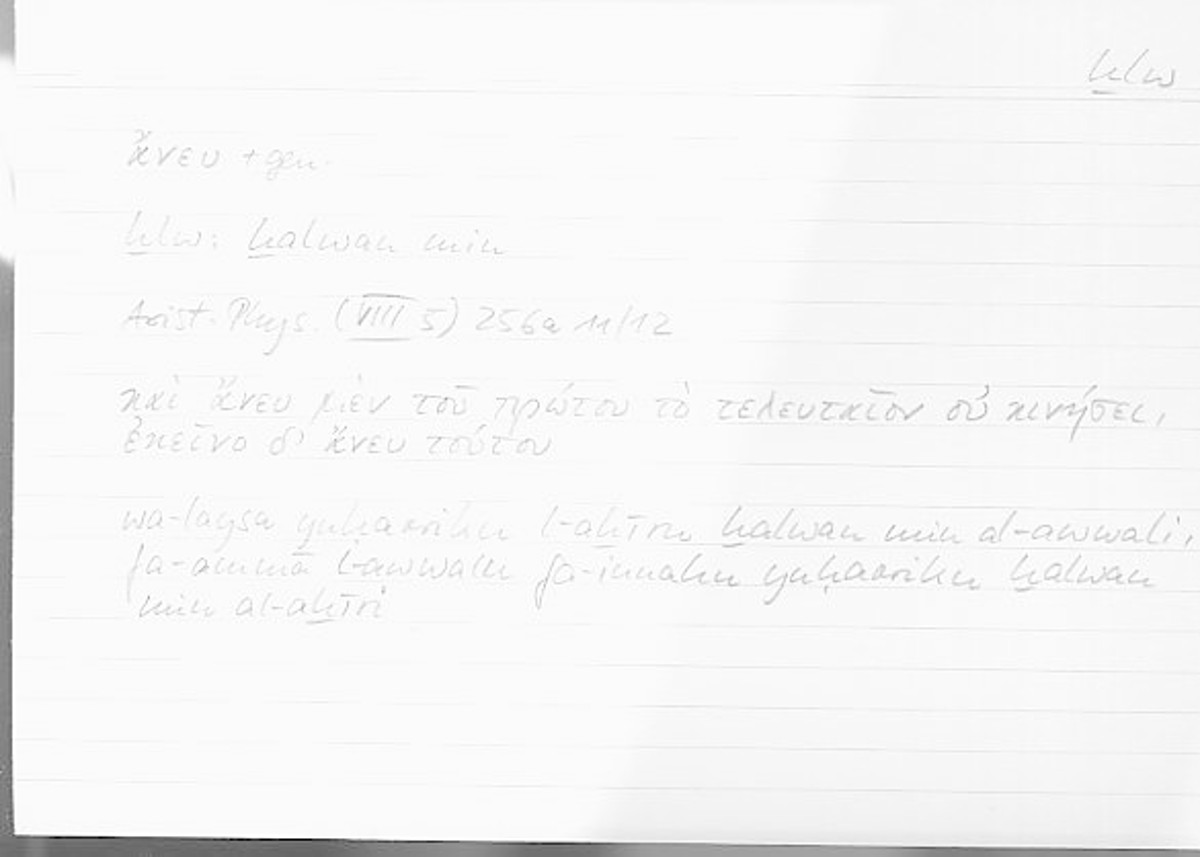 ḫlw
ἄνευ + gen.
ḫlw: ḫalwan min
Arist. Phys. (VIII 5) 256a 11/12
καὶ ἄνευ μὲν τοῦ πρώτου τὸ τελευταῖον οὐ κινήσει,
ἐκεῖνο δ' ἄνευ τούτου
wa-laysa yuḥarriku l-aḫīru ḫalwan min al-awwali,
fa-ammā l-awwalu fa-innahu yuḥarriku ḫalwan
min al-aḫīri